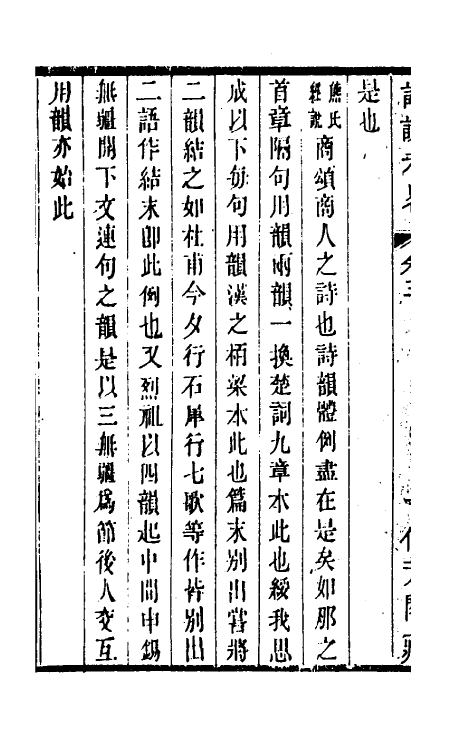 是也
熊氏經說商頌商人之詩也詩韻體例盡在是矣如那之
首章隔句用韻兩韻一換楚詞九章本此也綏我思
成以下每句用韻漢之栢梁本此也篇末別出嘗將
二韻結之如杜甫今夕行石犀行七歌等作皆別出
二語作結末卽此例也又烈祖以四韻起中間申錫
無疆閒下文連句之韻是以三無疆爲節後人交互
用韻亦始此